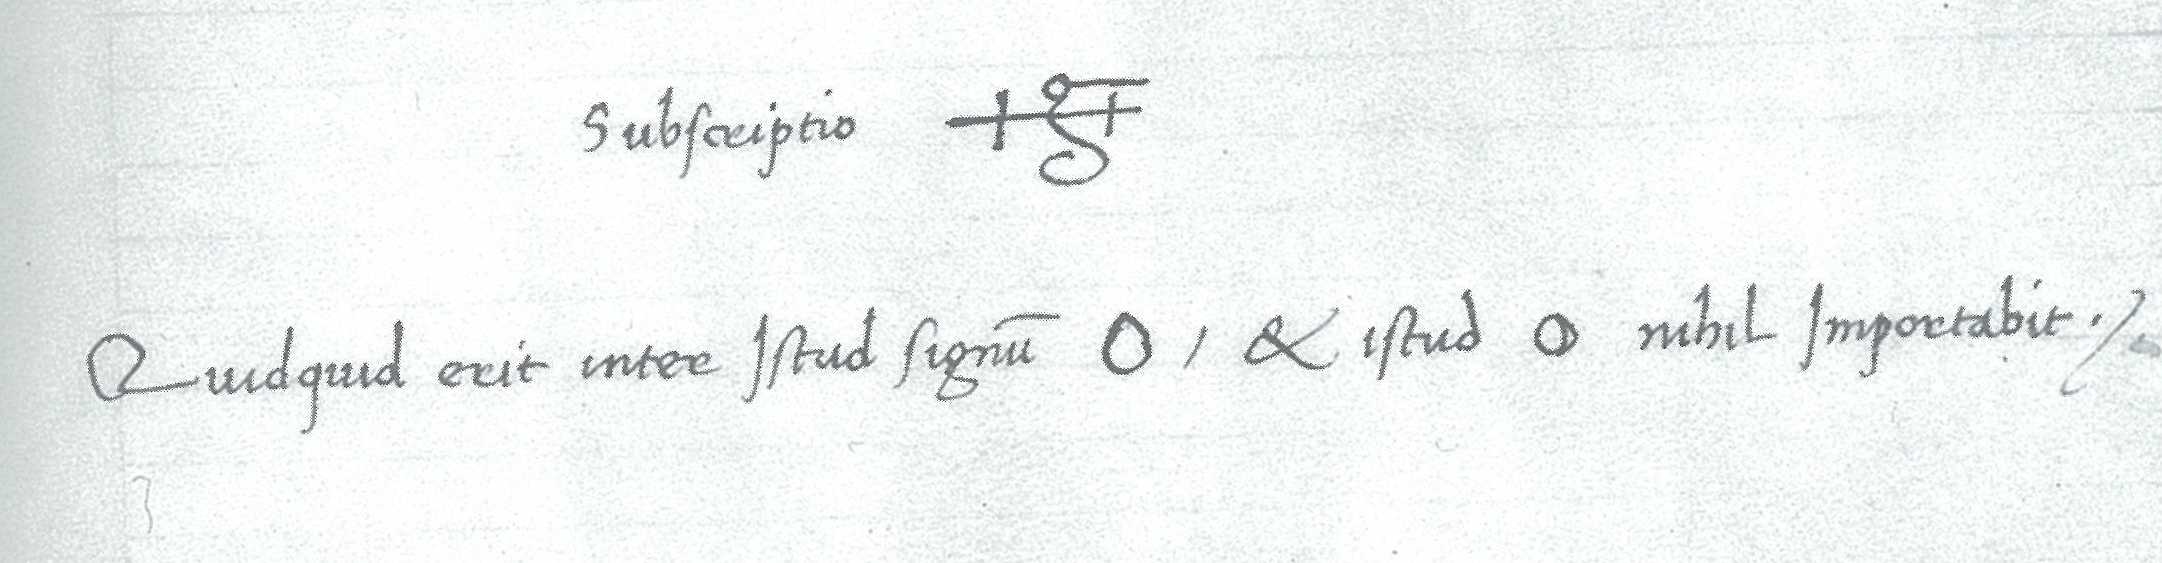 Subscriptio
Quidquid erit inter Istud signū O, & istud O nihil Importabit ·/